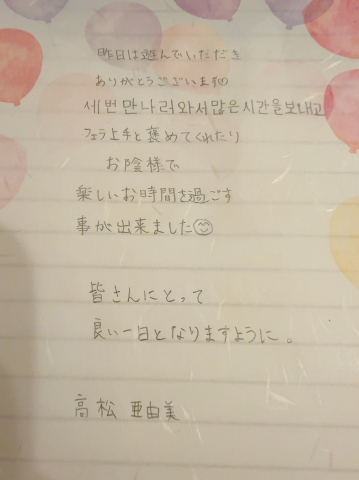 昨日は遊んでいただき
ありがとうございます♡
세번만나러와서많은시간을보내고
フェラ上手と褒めてくれたり
お陰様で
楽しいお時間を過ごす
事が出来ました😊
皆さんにとって
良い一日となりますように。
高松 亜由美